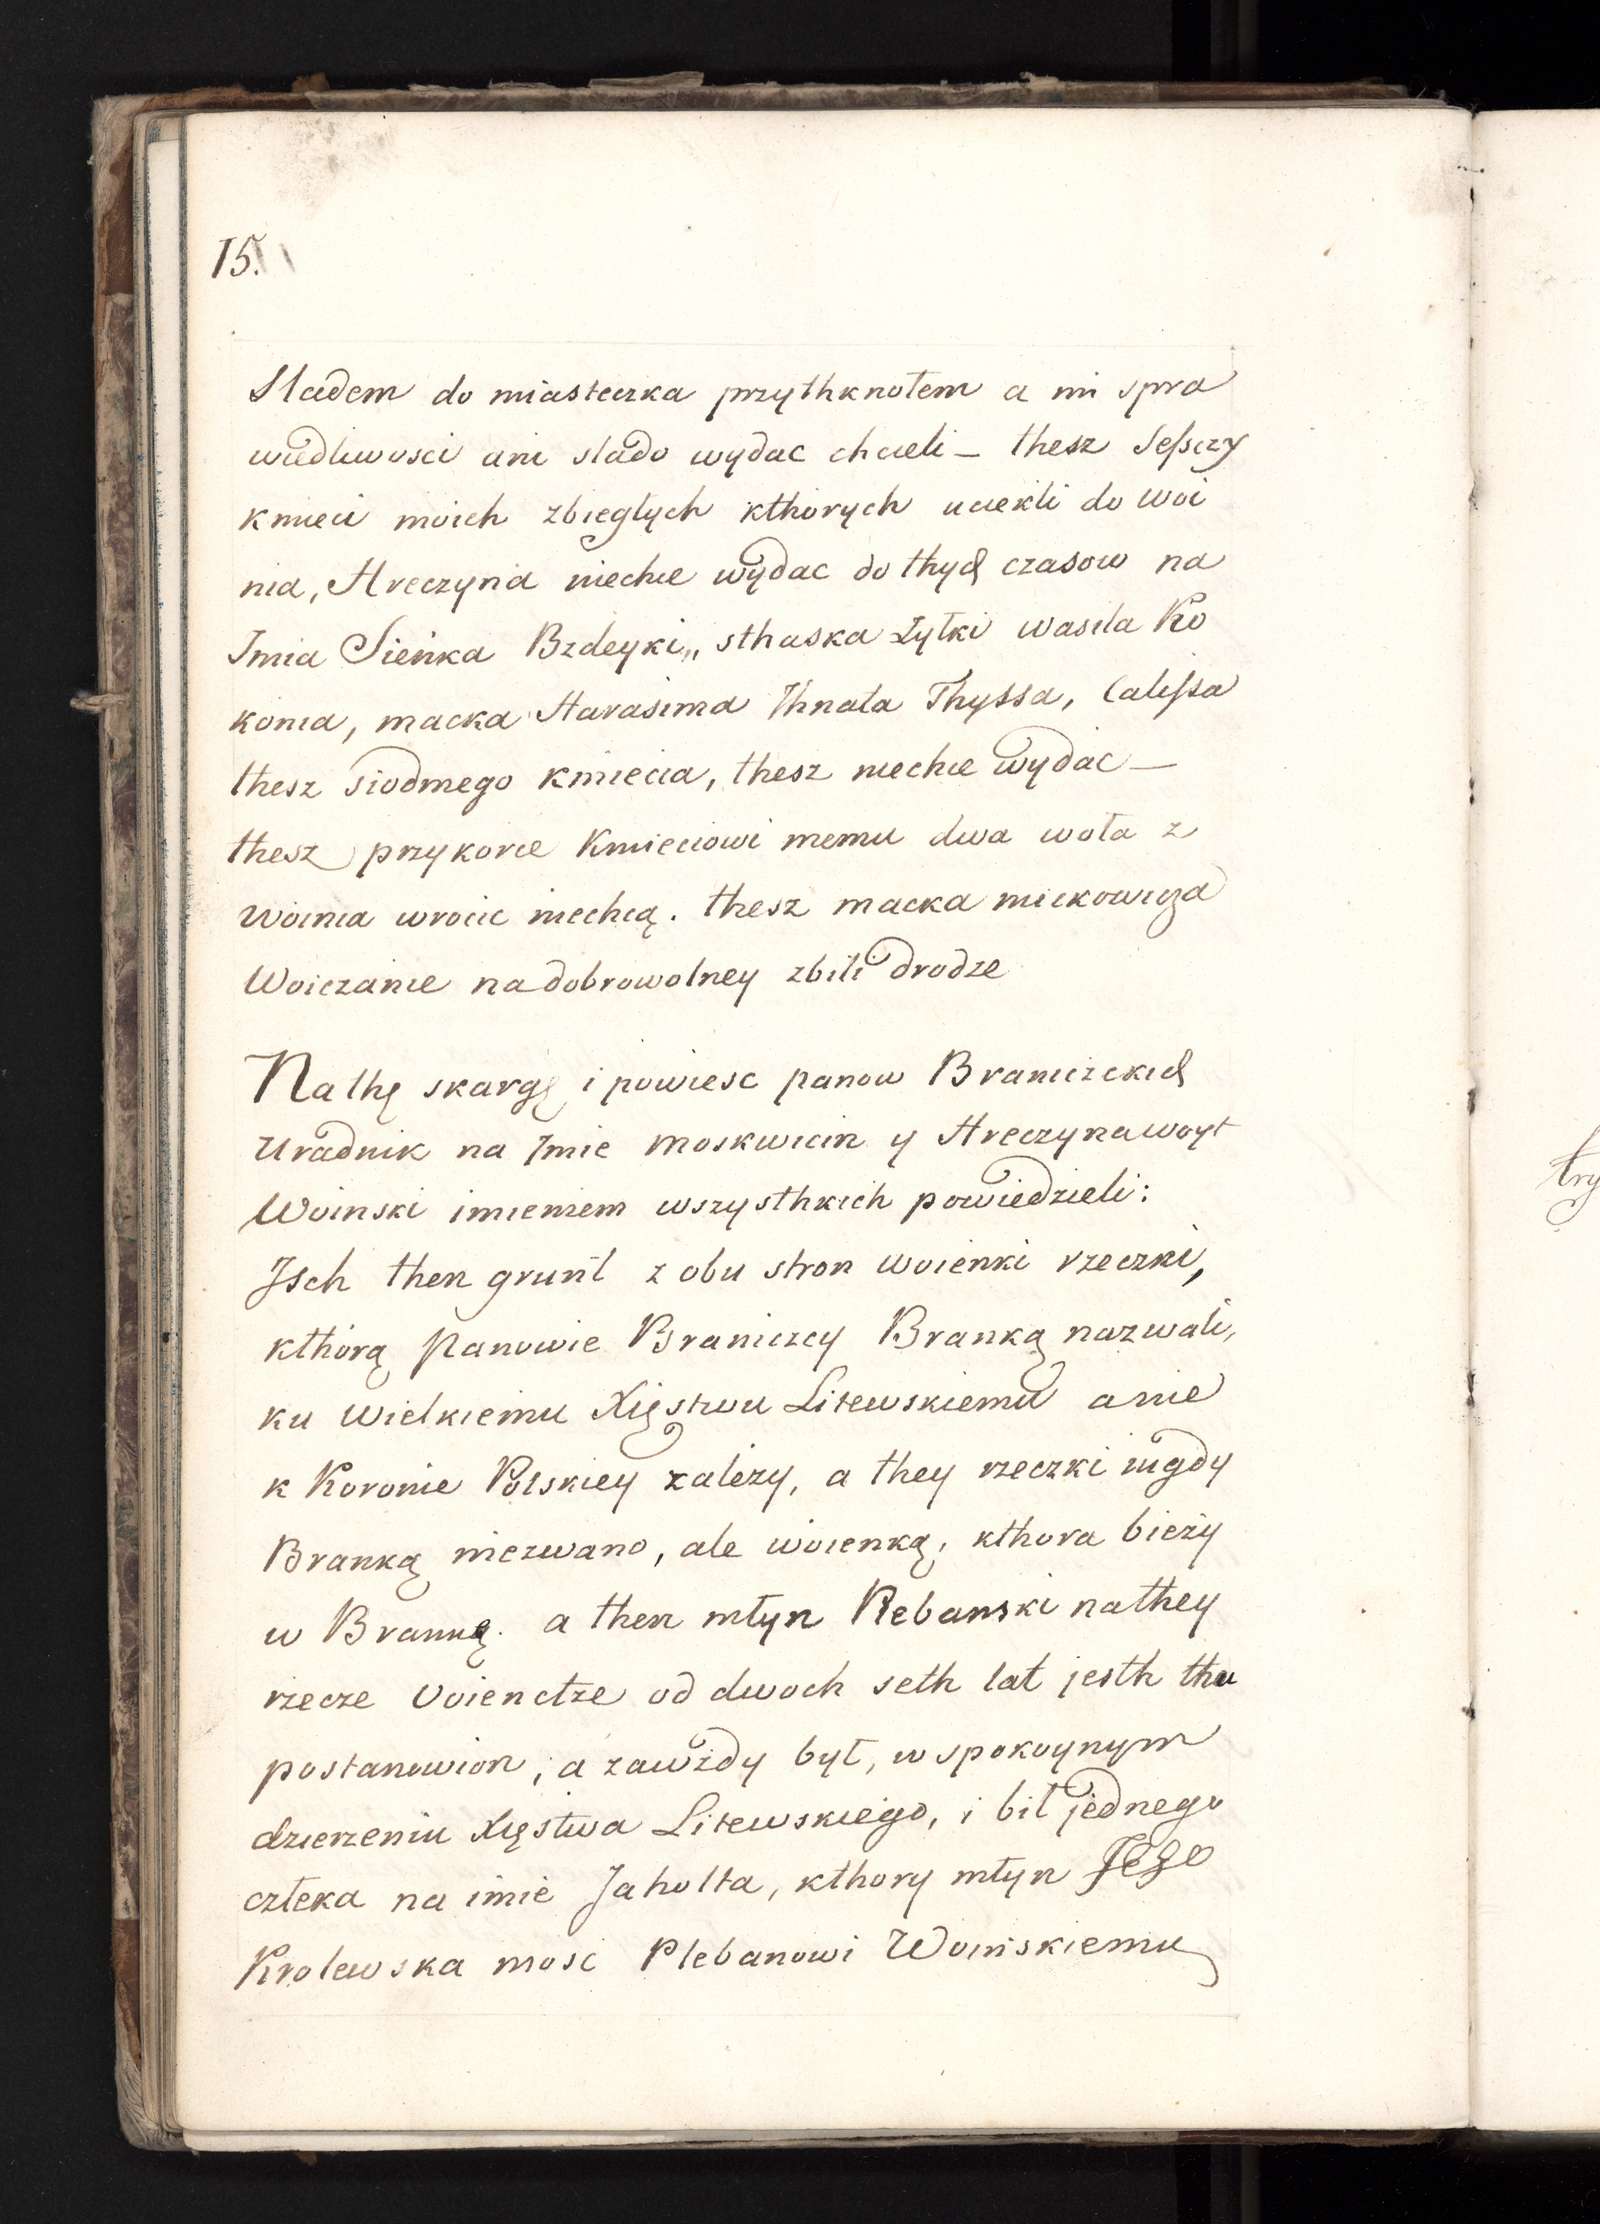 15.
Sladem do miasteczka przythknołem a mi spra
wiedliwosci ani slado wydac chcieli – thesz sesczy
kmieci moich zbiegłych kthorych uciekli do Woi
nia, Hreczyna niechce wydac do thych czasow na
Imia Sieńka Bzdeyki„ sthaska Łyłki wasila Ko
konia, macka Harasima Ihnata Thyssa,
thesz siodmego kmiecia, thesz niechce wydac –
thesz przykorce Kmieciowi memu dwa woła z
Woinia wrocic niechcą. thesz macka mickowicza
Woiczanie na dobrowolney zbili drodze
Nathę skargę i powiesc panow Braniczckich
Uradnik na Imie Moskwicin y Hreczyna woyt
Woinski imieniem wszysthkich powiedzieli:
Isch then grunt z obu stron woienki rzeczki,
kthorą Panowie Braniczcy Branką nazwali,
ku Wielkiemu Xięstwu Litewskiemu a nie
k Koronie Polskiey zależy, a they rzeczki nigdy
Branką niezwano, ale woienką, kthora bieży
w Brannę. a then młyn Rebanski nathey
rzecze Voienctze od dwoch seth lat jesth thu
postanowion, a zawżdy był, w spokoynym
dzierzeniu Xięstwa Litewskiego, i bił jednego
człeka na imie Jaholta, kthory młyn Jego
Krolewska mosc Plebanowi Woińskiemu
try